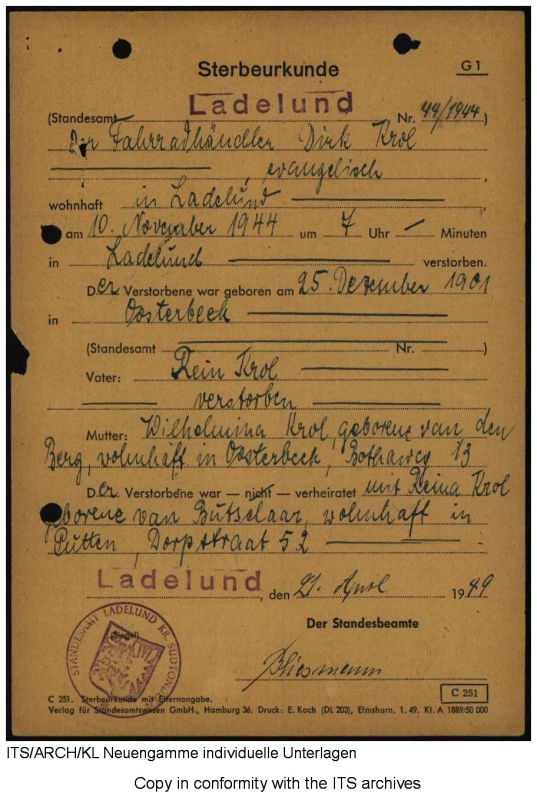 Sterbeurkunde
G 1
(Standesamt Ladelund Nr. 44/1944)
Der Fahrradhändler Dirk Krol
evangelisch
wohnhaft in Ladelund
am 10. November 1944 um 7 Uhr — Minuten
in Ladelund verstorben.
Der Verstorbene war geboren am 25. Dezember 1901
in Oosterbeek
(Standesamt Nr. )
Vater: Rein Krol
verstorben
Mutter: Wilhelmina Krol, geborene van den
Berg, wohnhaft in Oosterbeek, Bothaweg 13
Der Verstorbene war — nicht — verheiratet mit Reina Krol
geborene van Butselaar, wohnhaft in
Putten, Dorpstraat 52
Ladelund, den 21. April 1949
Der Standesbeamte
(Siegel)
STANDESAMT LADELUND KR. SÜDTON
C 251
C 251. Sterbeurkunde mit Elternangabe.
Verlag für Standesamtswesen GmbH., Hamburg 36. Druck: E. Koch (DL 203), Elmshorn. 1. 49. Kl. A 1889/50 000
ITS/ARCH/KL Neuengamme individuelle Unterlagen
Copy in conformity with the ITS archives